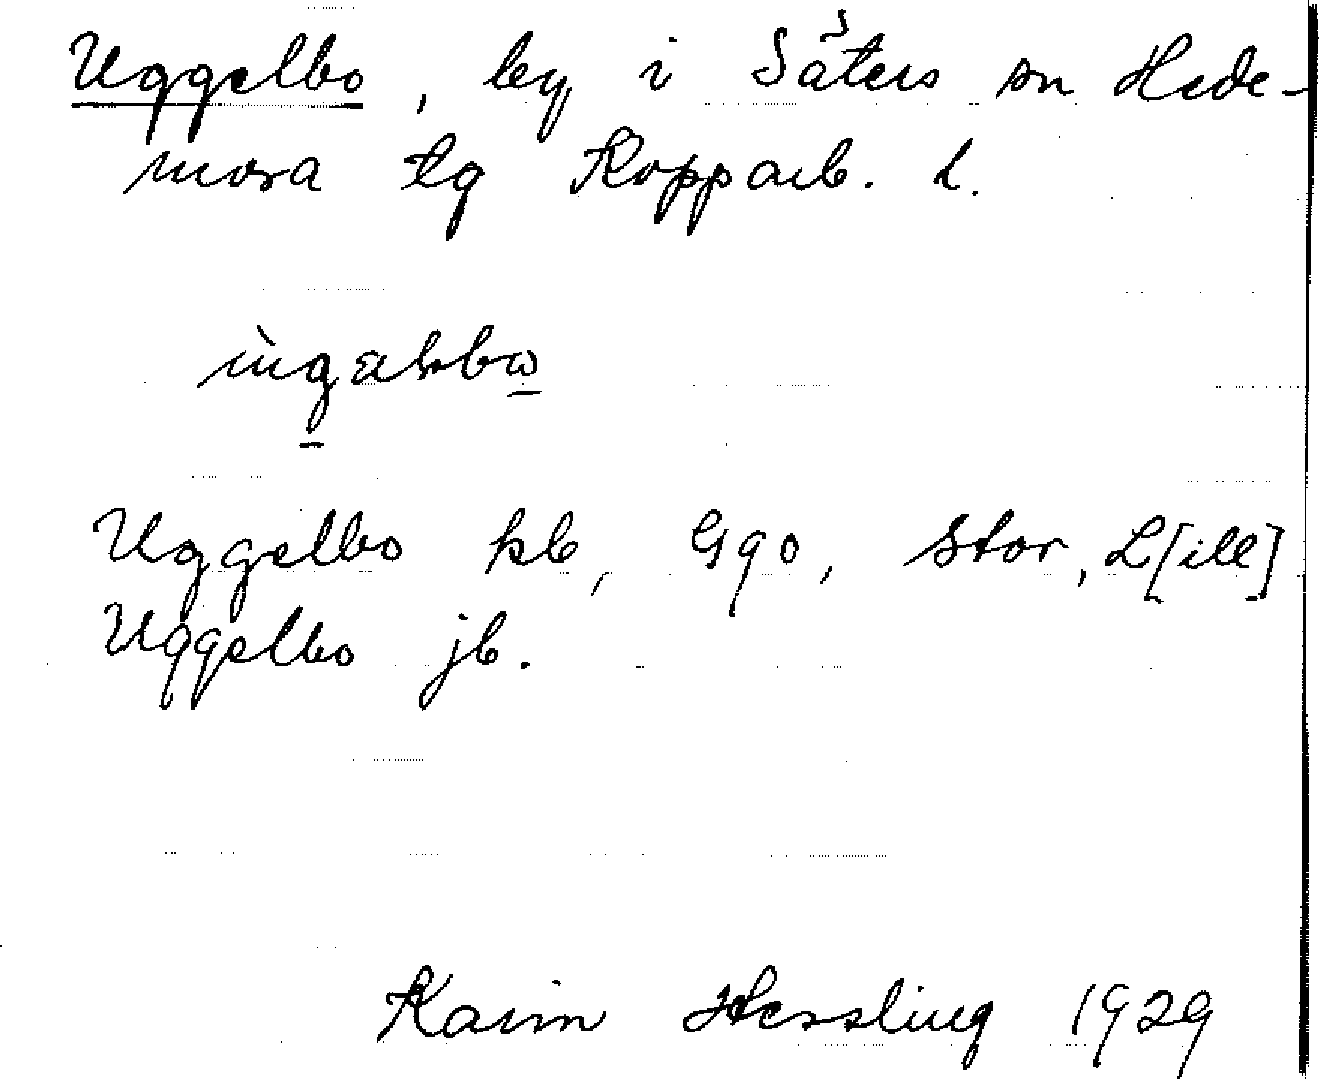 Uggelbo, by i Säters sn Hede-
mora tg Kopparb. l.
Uggelbo kb, Ggo, Stor, L[ill]
Uggelbo jb.
Karin Hessling 1929